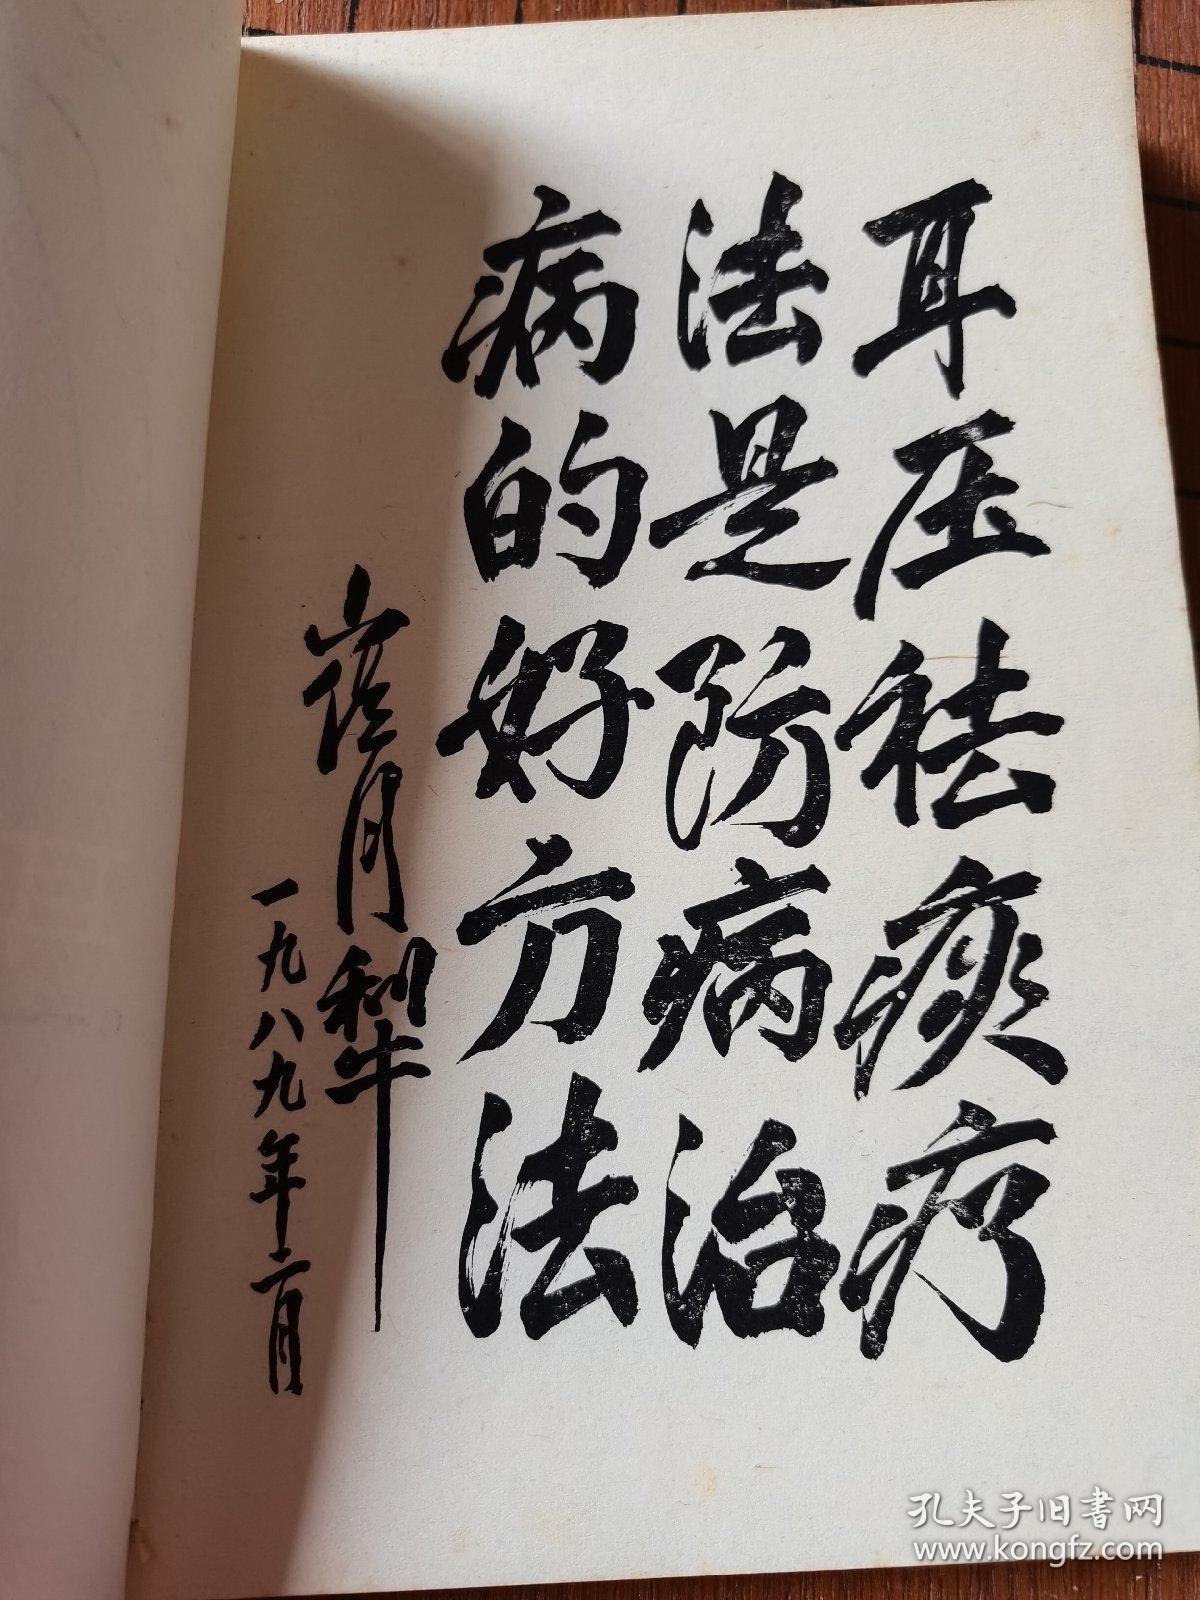 耳压祛痰疗
法是防病治
病的好方法
崔月犁
一九八九年二月
孔夫子旧书网
www.kongfz.com